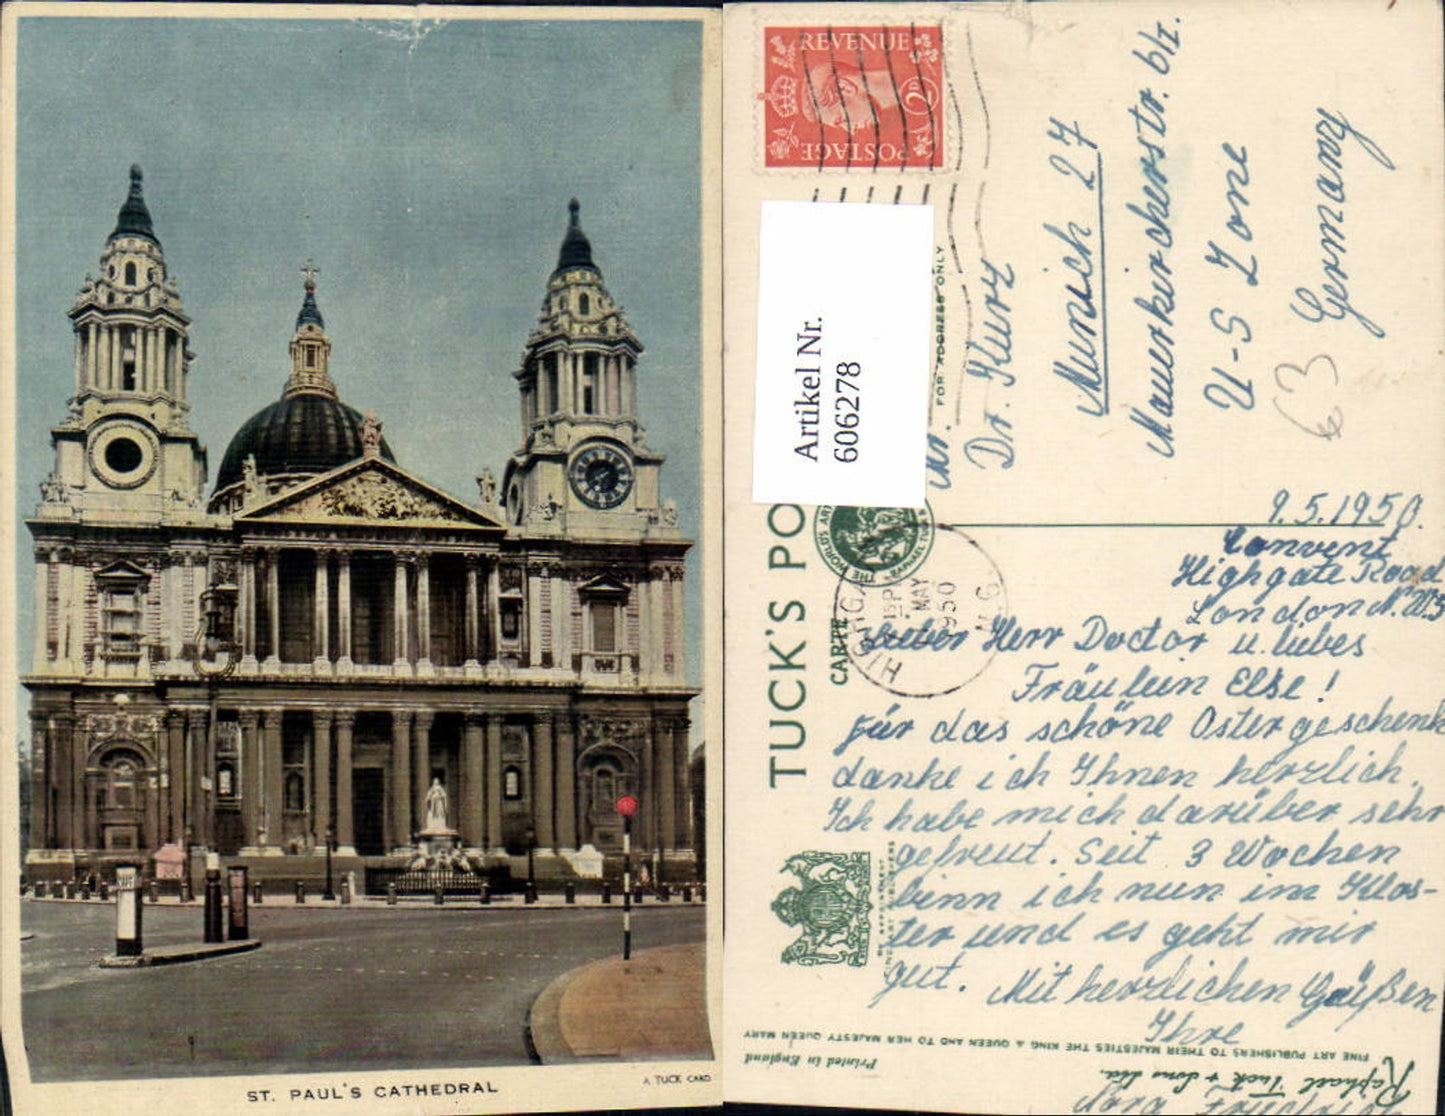 ST. PAUL'S CATHEDRAL
A TUCK CARD
REVENUE
2D
POSTAGE
Artikel Nr.
606278
FOR ADDRESS ONLY
TUCK'S PO
CARTE
HIGHGA
MAY
1950
Dr. Kurz
Munich 27
Mauerkircherstr. 6/I.
U-S Zone
Germany
63
9.5.1950.
Convent
Highgate Road
London N.W.5
Lieber Herr Doctor u. liebes
Fräulein Else!
für das schöne Ostergeschenk
danke ich Ihnen herzlich.
Ich habe mich darüber sehr
gefreut. Seit 3 Wochen
binn ich nun im Klos-
ter und es geht mir
gut. Mit herzlichen Grüßen
Ihre
FINE ART PUBLISHERS TO THEIR MAJESTIES THE KING & QUEEN AND TO HER MAJESTY QUEEN MARY
Raphael Tuck & Sons Ltd.
Printed in England